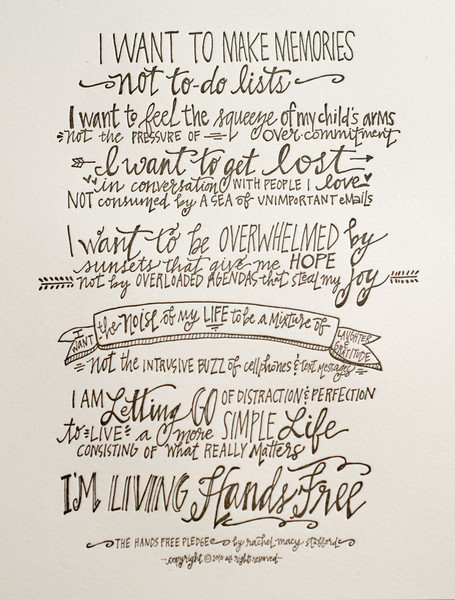 I WANT TO MAKE MEMORIES
not to-do lists
I want to feel the squeeze of my child's arms
not the PRESSURE OF over-commitment
I want to get lost
in conversation WITH PEOPLE I love
NOT consumed by A SEA OF UNIMPORTANT eMails
I want to be OVERWHELMED by
sunsets that give me HOPE
not by OVERLOADED AGENDAS that steal my joy
I WANT the NOISE of MY LIFE to be a MIXTURE OF LAUGHTER & GRATITUDE
not the INTRUSIVE BUZZ of cellphones & text messages
I AM Letting GO OF DISTRACTION & PERFECTION
to LIVE a more SIMPLE Life
CONSISTING OF what REALLY Matters
I'M LIVING Hands Free
THE HANDS FREE PLEDGE by rachel macy stafford
copyright © 2010 all rights reserved